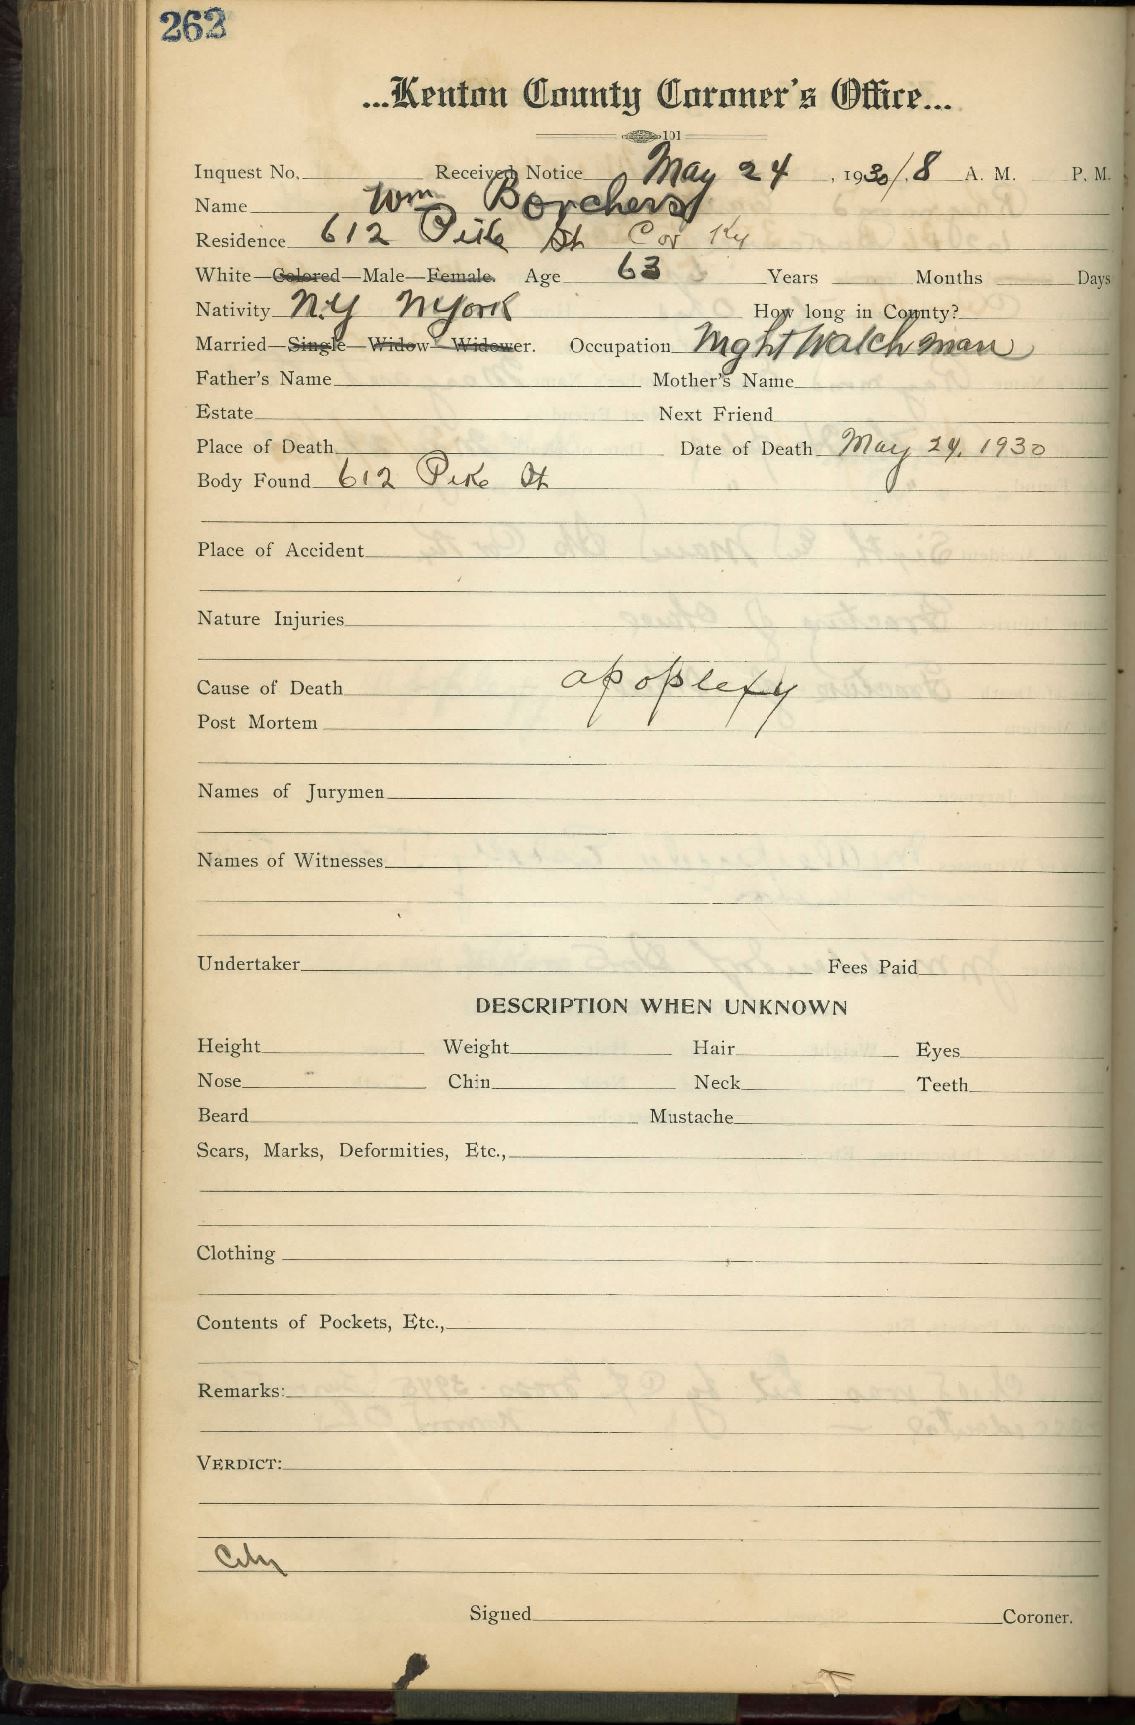 262
...Kenton County Coroner's Office...
101
Inquest No. Received Notice May 24, 1930/. 8 A. M. P. M.
Name Wm Borchers
Residence 612 Pike St Cov Ky
White—Colored—Male—Female. Age 63 Years Months Days
Nativity N.Y N York How long in County?
Married—Single—Widow—Widower. Occupation Night Watchman
Father's Name Mother's Name
Estate Next Friend
Place of Death Date of Death May 24, 1930
Body Found 612 Pike St
Place of Accident
Nature Injuries
Cause of Death apoplexy
Post Mortem
Names of Jurymen
Names of Witnesses
Undertaker Fees Paid
DESCRIPTION WHEN UNKNOWN
Height Weight Hair Eyes
Nose Chin Neck Teeth
Beard Mustache
Scars, Marks, Deformities, Etc.,
Clothing
Contents of Pockets, Etc.,
Remarks:
VERDICT:
City
Signed Coroner.